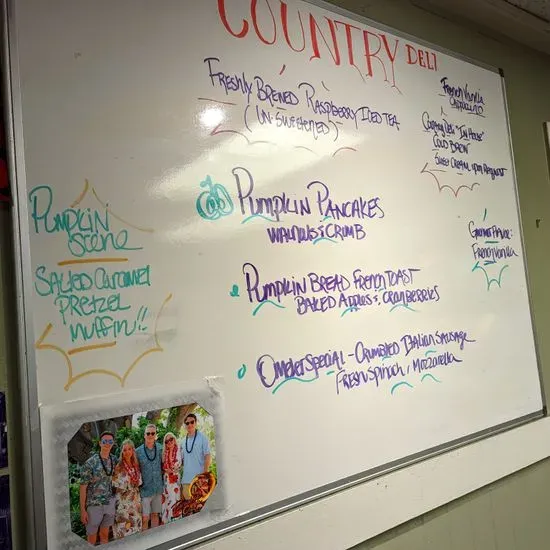 COUNTRY DELI
FRESHLY BREWED RASPBERRY ICED TEA
(UN-SWEETENED)
FRENCH VANILLA
CAPPUCCINO
COUNTRY DELI "IN HOUSE"
COLD BREW
SWEET CREAM UPON REQUEST
PUMPKIN PANCAKES
WALNUTS & CRUMB
PUMPKIN
SCONE
SALTED CARAMEL
PRETZEL
MUFFIN!!
FRENCH VANILLA
PUMPKIN BREAD FRENCH TOAST
BAKED APPLES & CRANBERRIES
OMELET SPECIAL - CRUMBLED ITALIAN SAUSAGE
FRESH SPINACH, MOZZARELLA